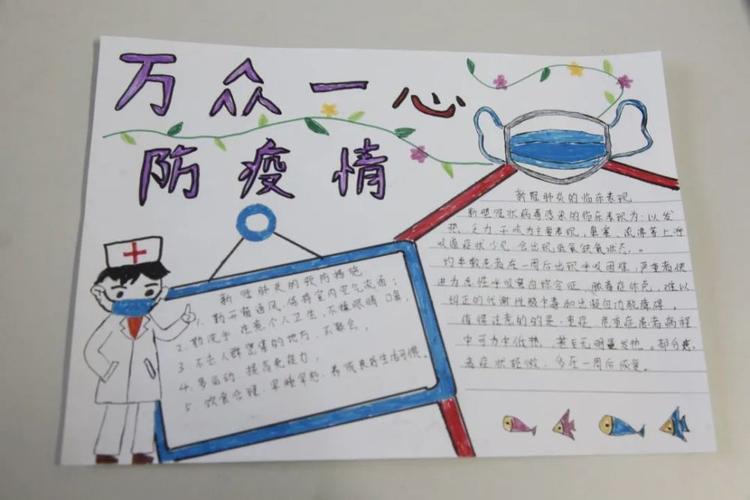 万众一心
防疫情
新冠肺炎的预防措施
1. 勤开窗通风,保持室内空气流通;
2. 勤洗手,注意个人卫生,不揉眼睛口鼻,
3. 不去人群密集的地方,不聚会,
4. 多运动,提高免疫力,
5. 饮食合理,早睡早起,养成良好生活习惯。
新冠肺炎的临床表现
新型冠状病毒感染的临床表现为:以发
热、乏力、干咳为主要表现,鼻塞、流涕等上呼
吸道症状少见,会出现缺氧低氧状态。
约半数患者在一周后出现呼吸困难,严重者快
速进为急性呼吸窘迫综合征、脓毒症休克、难以
纠正的代谢性酸中毒和出凝血功能障碍。
值得注意的是,重症、危重症患者病程
中可为中低热,甚至无明显发热。部分患
者症状轻微,多在一周后恢复。